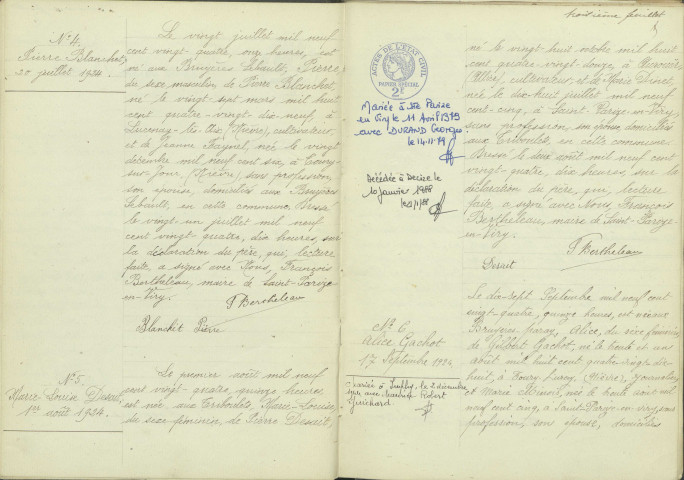 N° 4.
Pierre Blanchet
20 juillet 1924.
Le vingt juillet mil neuf
cent vingt-quatre, onze heures, est
né aux Bruyères Sebault, Pierre,
du sexe masculin, de Pierre Blanchet,
né le vingt sept mars mil huit
cent quatre-vingt-dix-neuf, à
Lucenay-les-Aix (Nièvre), cultivateur,
et de Jeanne née le vingt
décembre mil neuf cent six, à
sur-Jour (Nièvre), sans profession,
son épouse, domiciliés aux Bruyères
Sebault, en cette commune. Dressé
le vingt-un juillet mil neuf
cent vingt-quatre, dix heures, sur
la déclaration du père, qui, lecture
faite, a signé avec Nous, François
Bertheleau, maire de Saint-Parize-
en-Viry.
F. Bertheleau
Blanchet Pierre
N° 5.
Marie-Louise
1er août 1924.
Le premier août mil neuf
cent vingt-quatre, quinze heures
est née aux Marie-Louise,
du sexe féminin, de Pierre
troisième feuillet
né le vingt-huit octobre mil huit
cent quatre-vingt-douze, à
(Allier), cultivateur, et de Marie
née le dix-huit juillet mil neuf
cent-cinq, à Saint-Parize-en-Viry,
sans profession, son épouse, domiciliés
aux en cette commune.
Dressé le deux août mil neuf cent
vingt-quatre, dix heures, sur la
déclaration du père, qui, lecture
faite, a signé avec Nous, François
Bertheleau, maire de Saint-Parize-
en-Viry.
F. Bertheleau
ACTES DE L'ÉTAT CIVIL
PAPIER SPÉCIAL
2F
Mariée à St Parize
en Viry le 11 Avril 1979
avec DURAND Georges
le 14.11.79
Décédée à Decize le
10 janvier 1988
N° 6
Alice Gachot
17 Septembre 1924
Mariée à le 2 décembre
avec Robert
Guichard
Le dix-sept Septembre mil neuf cent
vingt-quatre, quinze heures, est née aux
Bruyères Alice, du sexe féminin,
de Gilbert Gachot, né le trente et un
août mil huit cent quatre-vingt dix
huit, à (Nièvre), journalier,
et Marie née le trente août mil
neuf cent cinq, à Saint-Parize-en-Viry, sans
profession, son épouse, domiciliés